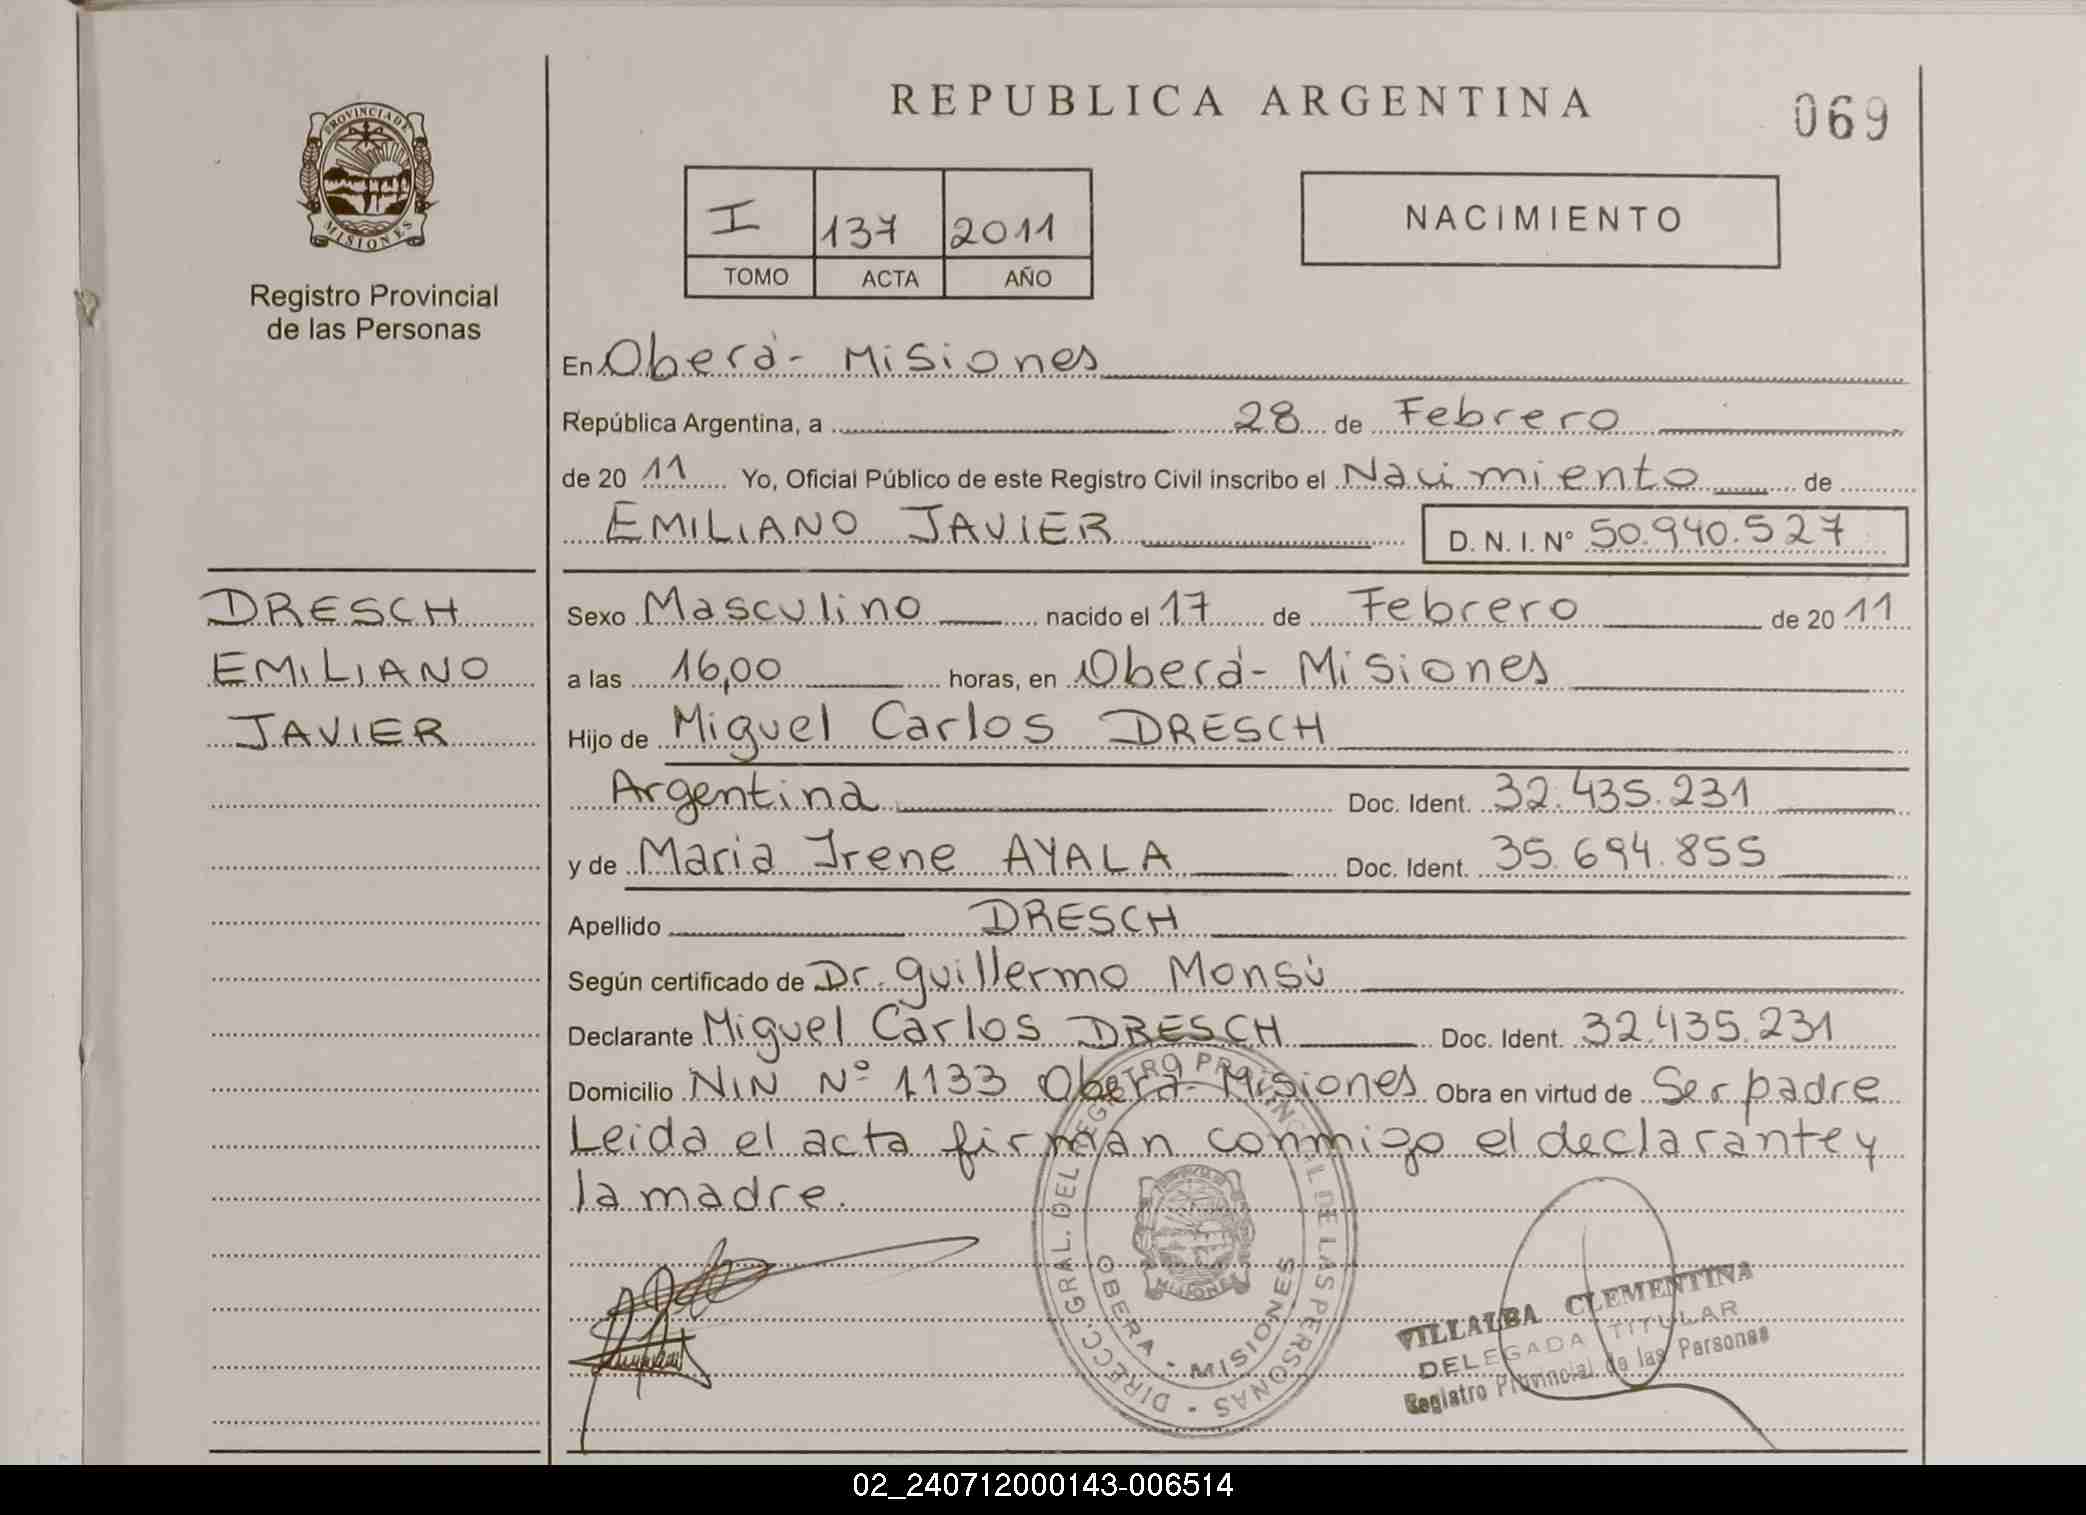 REPUBLICA ARGENTINA
069
PROVINCIA DE
MISIONES
Registro Provincial
de las Personas
I 137 2011
TOMO ACTA AÑO
NACIMIENTO
En Oberá - Misiones
República Argentina, a 28 de Febrero
de 20 11 Yo, Oficial Público de este Registro Civil inscribo el Nacimiento de
EMILIANO JAVIER D. N. I. N° 50.940.527
DRESCH
EMILIANO
JAVIER
Sexo Masculino nacido el 17 de Febrero de 20 11
a las 16,00 horas, en Oberá - Misiones
Hijo de Miguel Carlos DRESCH
Argentina Doc. Ident. 32.435.231
y de Maria Irene AYALA Doc. Ident. 35.694.855
Apellido DRESCH
Según certificado de Dr. Guillermo Monsú
Declarante Miguel Carlos DRESCH Doc. Ident. 32.435.231
Domicilio NIN N° 1133 Oberá - Misiones Obra en virtud de Ser padre
Leida el acta firman conmigo el declarante y
la madre.
DIRECC. GRAL. DEL REGISTRO PROVINCIAL DE LAS PERSONAS -
OBERA - MISIONES
MISIONES
VILLALBA CLEMENTINA
DELEGADA TITULAR
Registro Provincial de las Personas
02_240712000143-006514